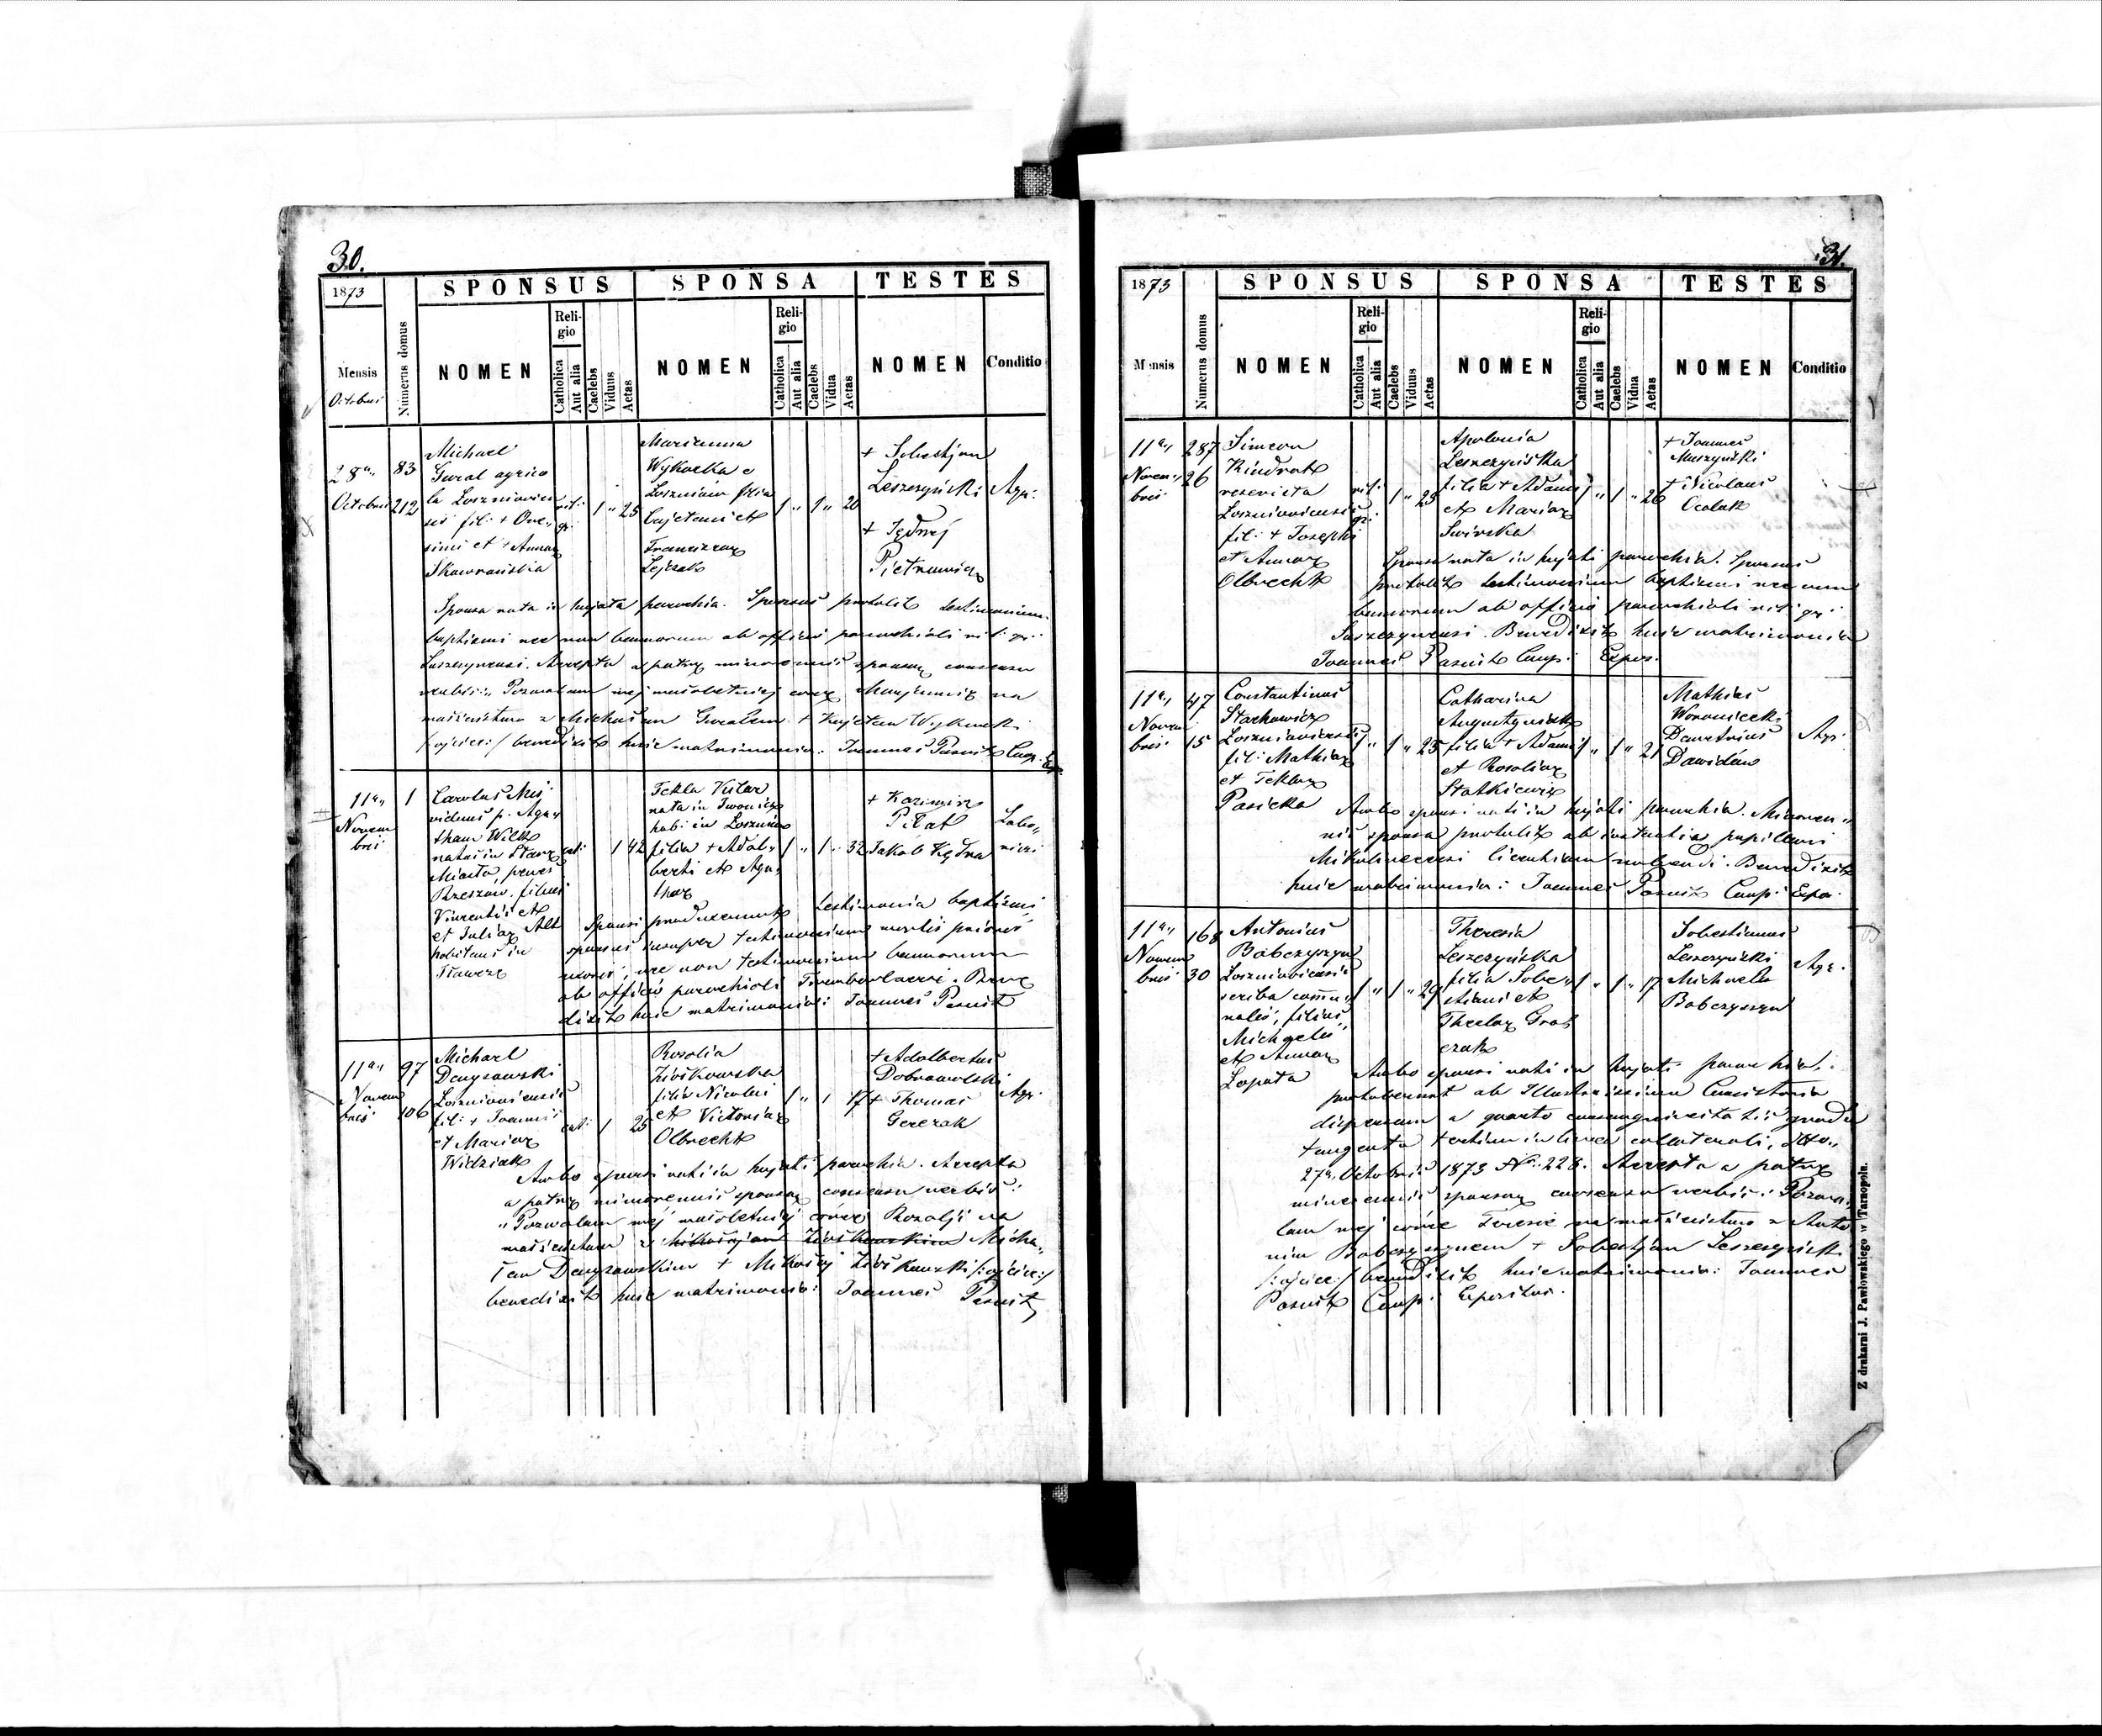 30.
1873
SPONSUS
SPONSA
TESTES
Mensis
Octobris
Numerus domus
NOMEN
Religio
Catholica
Aut alia
Caelebs
Viduus
Aetas
NOMEN
Religio
Catholica
Aut alia
Caelebs
Vidua
Aetas
NOMEN
Conditio
28a
Octobris
83
212
Michael
Gural agrico
la Loszniovien
sis fil: + One„
simi et + Annae
Skawrońska
rit:
gr:
1 „ 25
Marianna
Wykocka
Loszniów filia
Cajetani et
Franciscae
Lejczak
1 „ 1 „ 20
+ Sobestjan
Leszczyński
+ Jędrzej
Pietruwicz
Agr:
Sponsa nata in hujata parochia. Sponsus protulit testimonium
baptismi nec non bannorum ab officio parochiali rit: gr:
Accepta a patre minorennis sponsae consensu
verbis: Pozwalam mej małoletniej córce Marjannie na
małżeństwo z Michałem Guralem + Kajetan Wykocki
/:ojciec:/ benedixit huic matrimonio: Joannes Pasnik Coop. Exp.
11a
Novem
bris
1
Carolus
viduus p. Aga„
tham Wilk
natus in Stare
Miasto, penes
Rzeszów, filius
Vincentii et
et Juliae Alt
habitans in
cat:
1 42
Tekla Kilar
nata in Iwonicz
hab: in Loszniów
filia + Adal„
berti et Aga„
thae
1 „ 1 „ 32
+ Kazimirz
Piłat
Jakob Kędra
Labo„
Sponsi produxerunt testimonia baptismi
sponsus insuper testimonium mortis prioris
uxoris, nec non testimonium bannorum
ab officio parochiali Trembowlaensi. Bene
dixit huic matrimonio: Joannes Pasnik
11a
Novem
bris
97
106
Michael
Denysowski
Loszniowiensis
fil: + Joannis
et Mariae
Widziak
cat:
1 25
Rosalia
Ziółkowska
filia Nicolai
et Victoriae
Olbrecht
1 „ 1 17
+ Adalbertus
Dobrowolski
+ Thomas
Gerczak
Agr:
Ambo sponsi nati in hujati parochia. Accepta
a patre minorennis sponsae consensu verbis:
„Pozwalam mej małoletniej córce Rozalji na
małżeństwo z Micha„
łem Denysowskim + Mikołaj Ziółkowski /:ojciec:/
benedixit huic matrimonio: Joannes Pasnik
31.
1873
SPONSUS
SPONSA
TESTES
Mensis
Numerus domus
NOMEN
Religio
Catholica
Aut alia
Caelebs
Viduus
Aetas
NOMEN
Religio
Catholica
Aut alia
Caelebs
Vidua
Aetas
NOMEN
Conditio
11a
Novem
bris
287
26
Simeon
Kindrat
Loszniowiensis
fil: + Josephi
et Annae
Olbrecht
rit:
gr:
1 „ 25
Apolonia
Leszczyńska
filia + Adami
et Mariae
Swirska
1 „ 1 „ 26
+ Joannes
Muszyński
+ Nicolaus
Sponsa nata in hujati parochia. Sponsus
protulit testimonium baptismi nec non
bannorum ab officio parochiali rit: gr:
Benedixit huic matrimonio
Joannes Pasnik Coop: Expos.
11a
Novem
bris
47
15
Constantinus
Stachowicz
Loszniowiensis
fil: Mathiae
et Teklae
Pasicka
1 „ 1 „ 25
Catharina
Augustyniak
filia + Adami
et Rosaliae
Statkiewicz
1 „ 1 „ 21
Mathias
Woronicki
Demetrius
Dawidów
Agr:
Ambo sponsi nati in hujati parochia. Minoren„
nis sponsa protulit ab instantia pupillari
Mikulincensi licentiam nubendi. Benedixit
huic matrimonio: Joannes Pasnik Coop: Expo.
11a
Novem
bris
168
30
Antonius
Bobczyszyn
Loszniowiensis
scriba commu„
nalis, filius
Michaelis
et Annae
Łopata
1 „ 1 „ 29
Theresia
Leszczyńska
filia Sobe„
stiani et
Theclae Grab
czak
1 „ 1 „ 17
Sobestianus
Leszczyński
Michaelis
Bobczyszyn
Agr:
Ambo sponsi nati in hujati parochia:
protulerunt ab Illustrissimo Consistorio
dispensam a quarto consanguinitatis gradu
tangente tertium in linea collaterali, ddto„
27a Octobris 1873 No: 228. Accepta a patre
minorennis sponsae consensu verbis: Pozwa„
lam mej córce Teresie na małżeństwo z Anto
nim Bobczyszynem + Sobestjan Leszczyński
/:ojciec:/ benedixit huic matrimonio: Joannes
Pasnik Coop: Expositus.
Z drukarni J. Pawłowskiego w Tarnopolu.